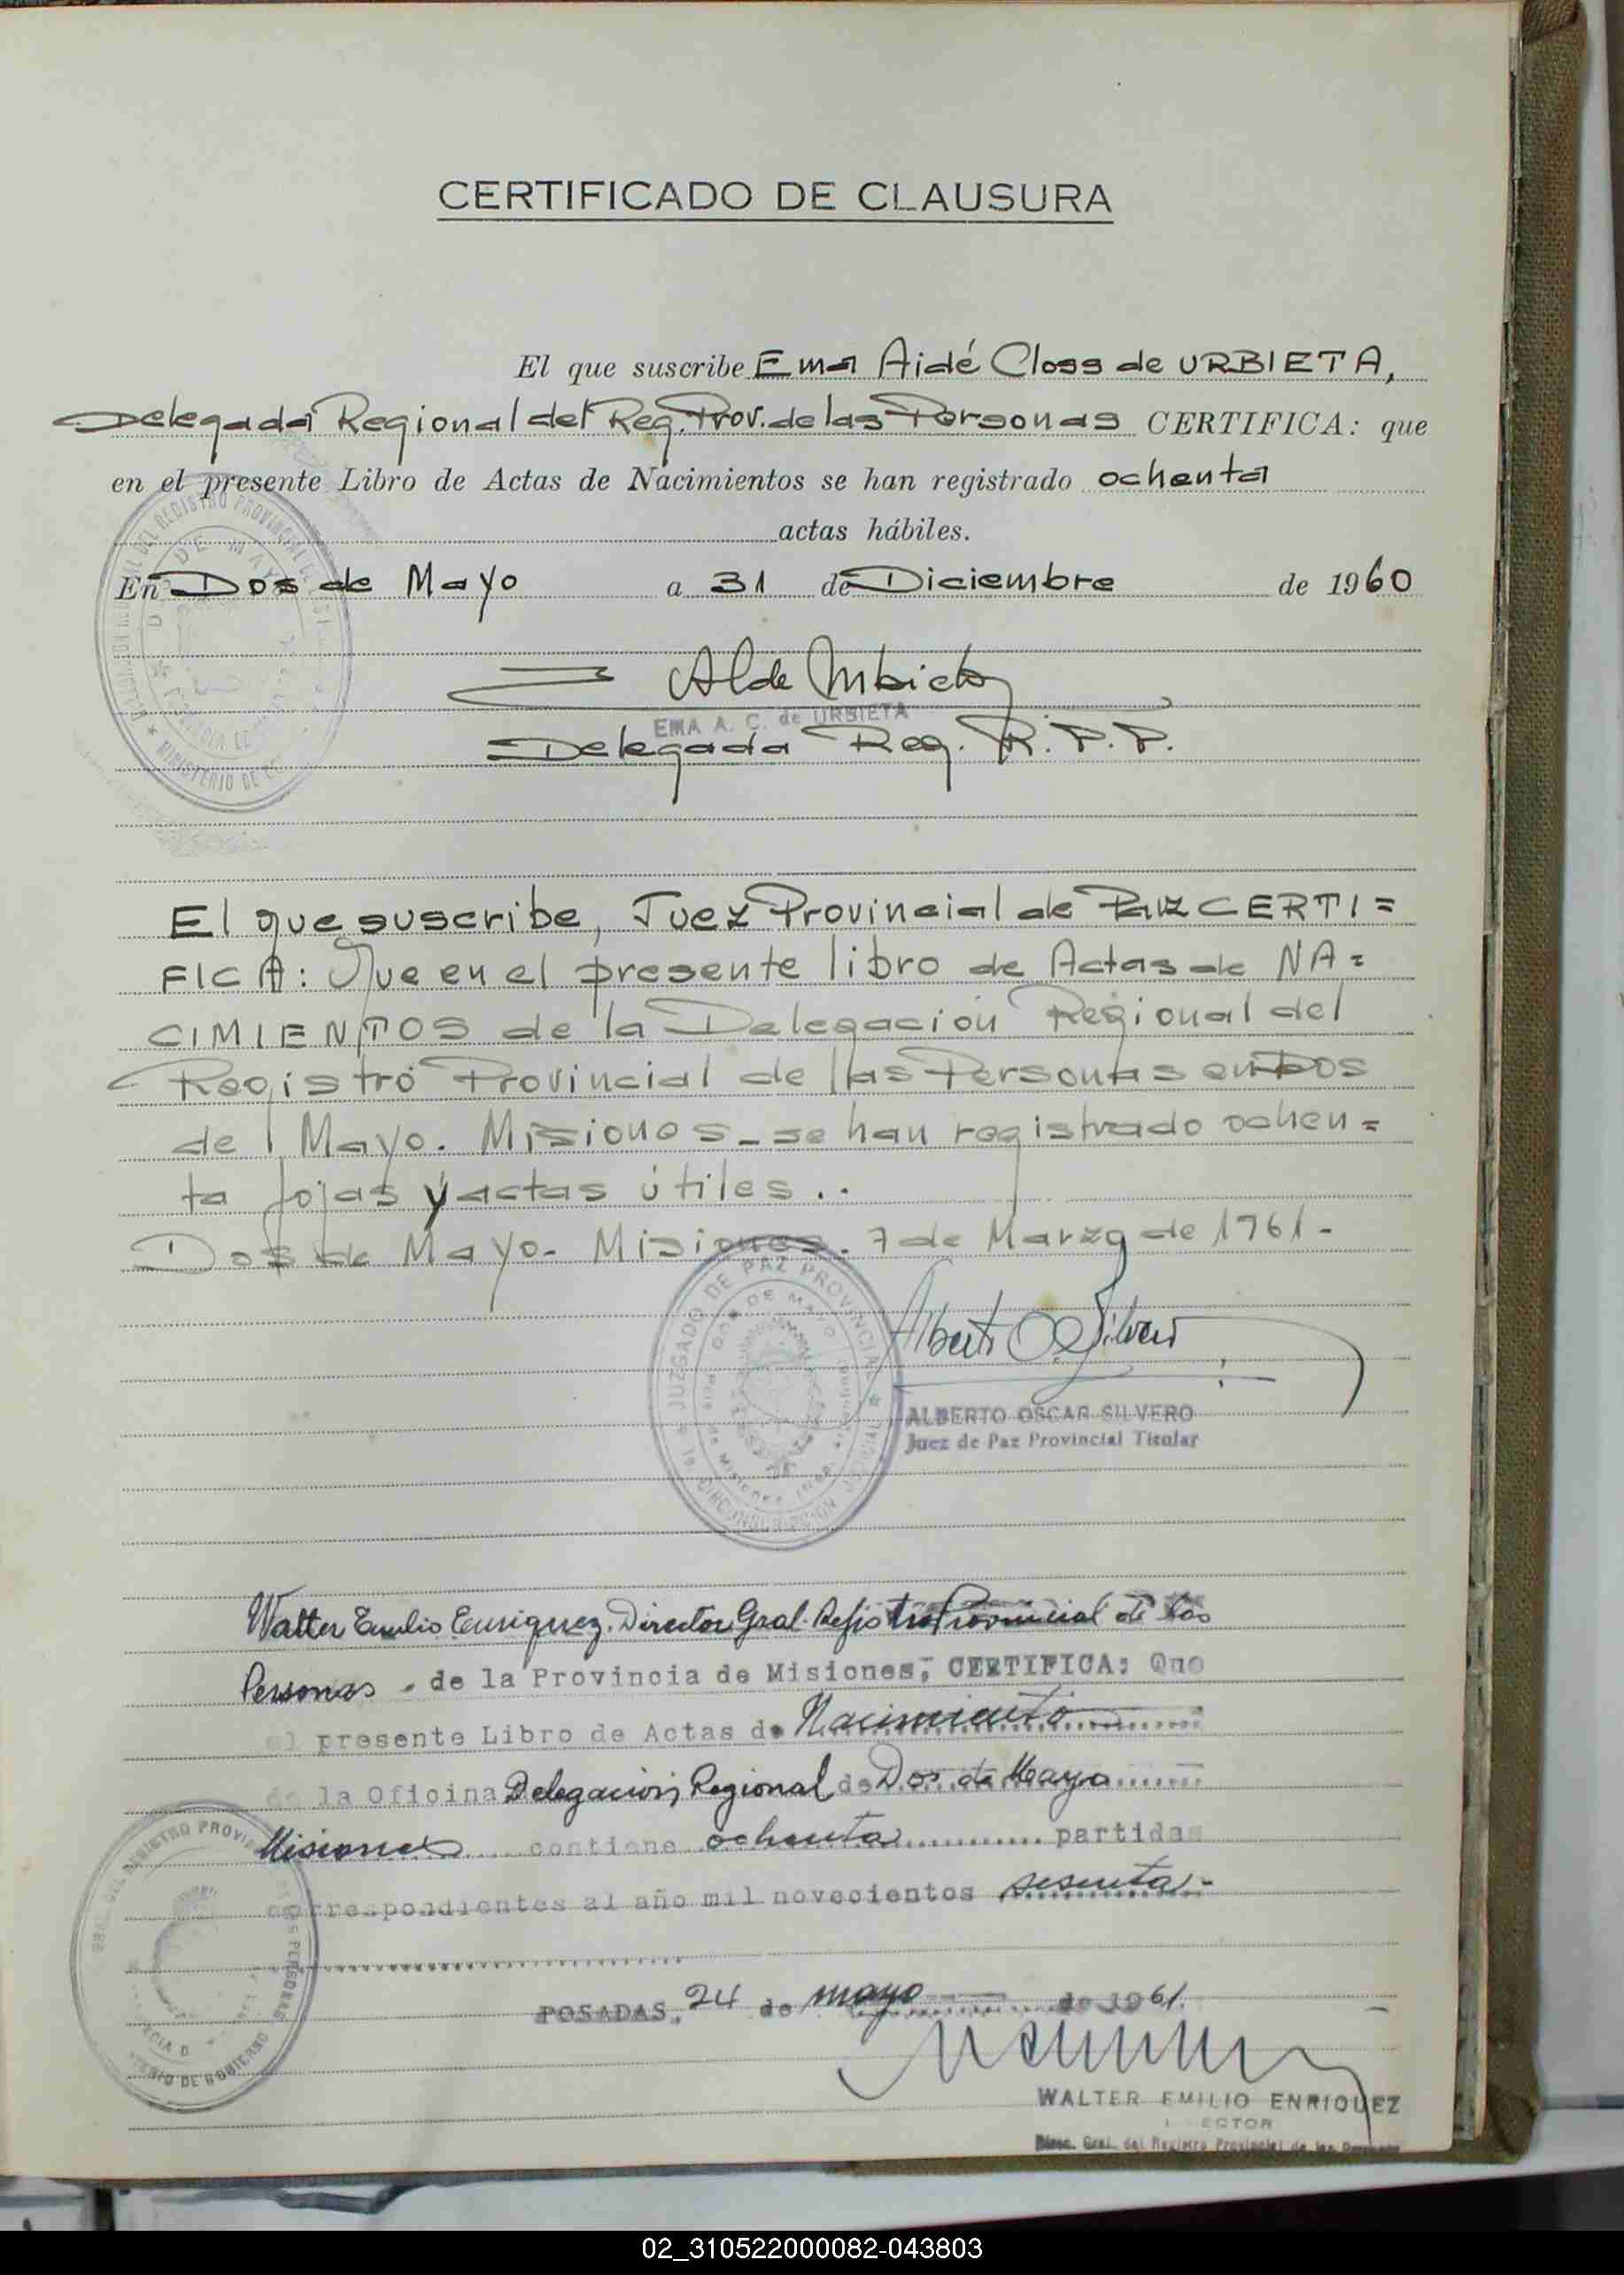 CERTIFICADO DE CLAUSURA
El que suscribe Ema Aidé Closs de URBIETA,
Delegada Regional del Reg. Prov. de las Personas CERTIFICA: que
en el presente Libro de Actas de Nacimientos se han registrado ochenta
actas hábiles.
En Dos de Mayo a 31 de Diciembre de 1960
EMA A. C. de URBIETA
Delegada Reg. R. P. P.
El que suscribe, Juez Provincial de Paz CERTI=
FICA: Que en el presente libro de Actas de NA=
CIMIENTOS de la Delegación Regional del
Registro Provincial de las Personas en Dos
de Mayo. Misiones - se han registrado ochen=
ta fojas y actas útiles..
Dos de Mayo - Misiones. 7 de Marzo de 1961-
JUZGADO DE PAZ PROVINCIAL
DOS DE MAYO
Alberto O. Silvero
ALBERTO OSCAR SILVERO
Juez de Paz Provincial Titular
Walter Emilio Enriquez. Director Gral. Registro Provincial de las
Personas - de la Provincia de Misiones, CERTIFICA: Que
el presente Libro de Actas de Nacimiento
de la Oficina Delegación Regional de Dos de Mayo
Misiones contiene ochenta partidas
correspondientes al año mil novecientos sesenta-
POSADAS, 24 de mayo de 1961.
WALTER EMILIO ENRIQUEZ
Direc. Gral. del Registro Provincial de las Personas
02_310522000082-043803